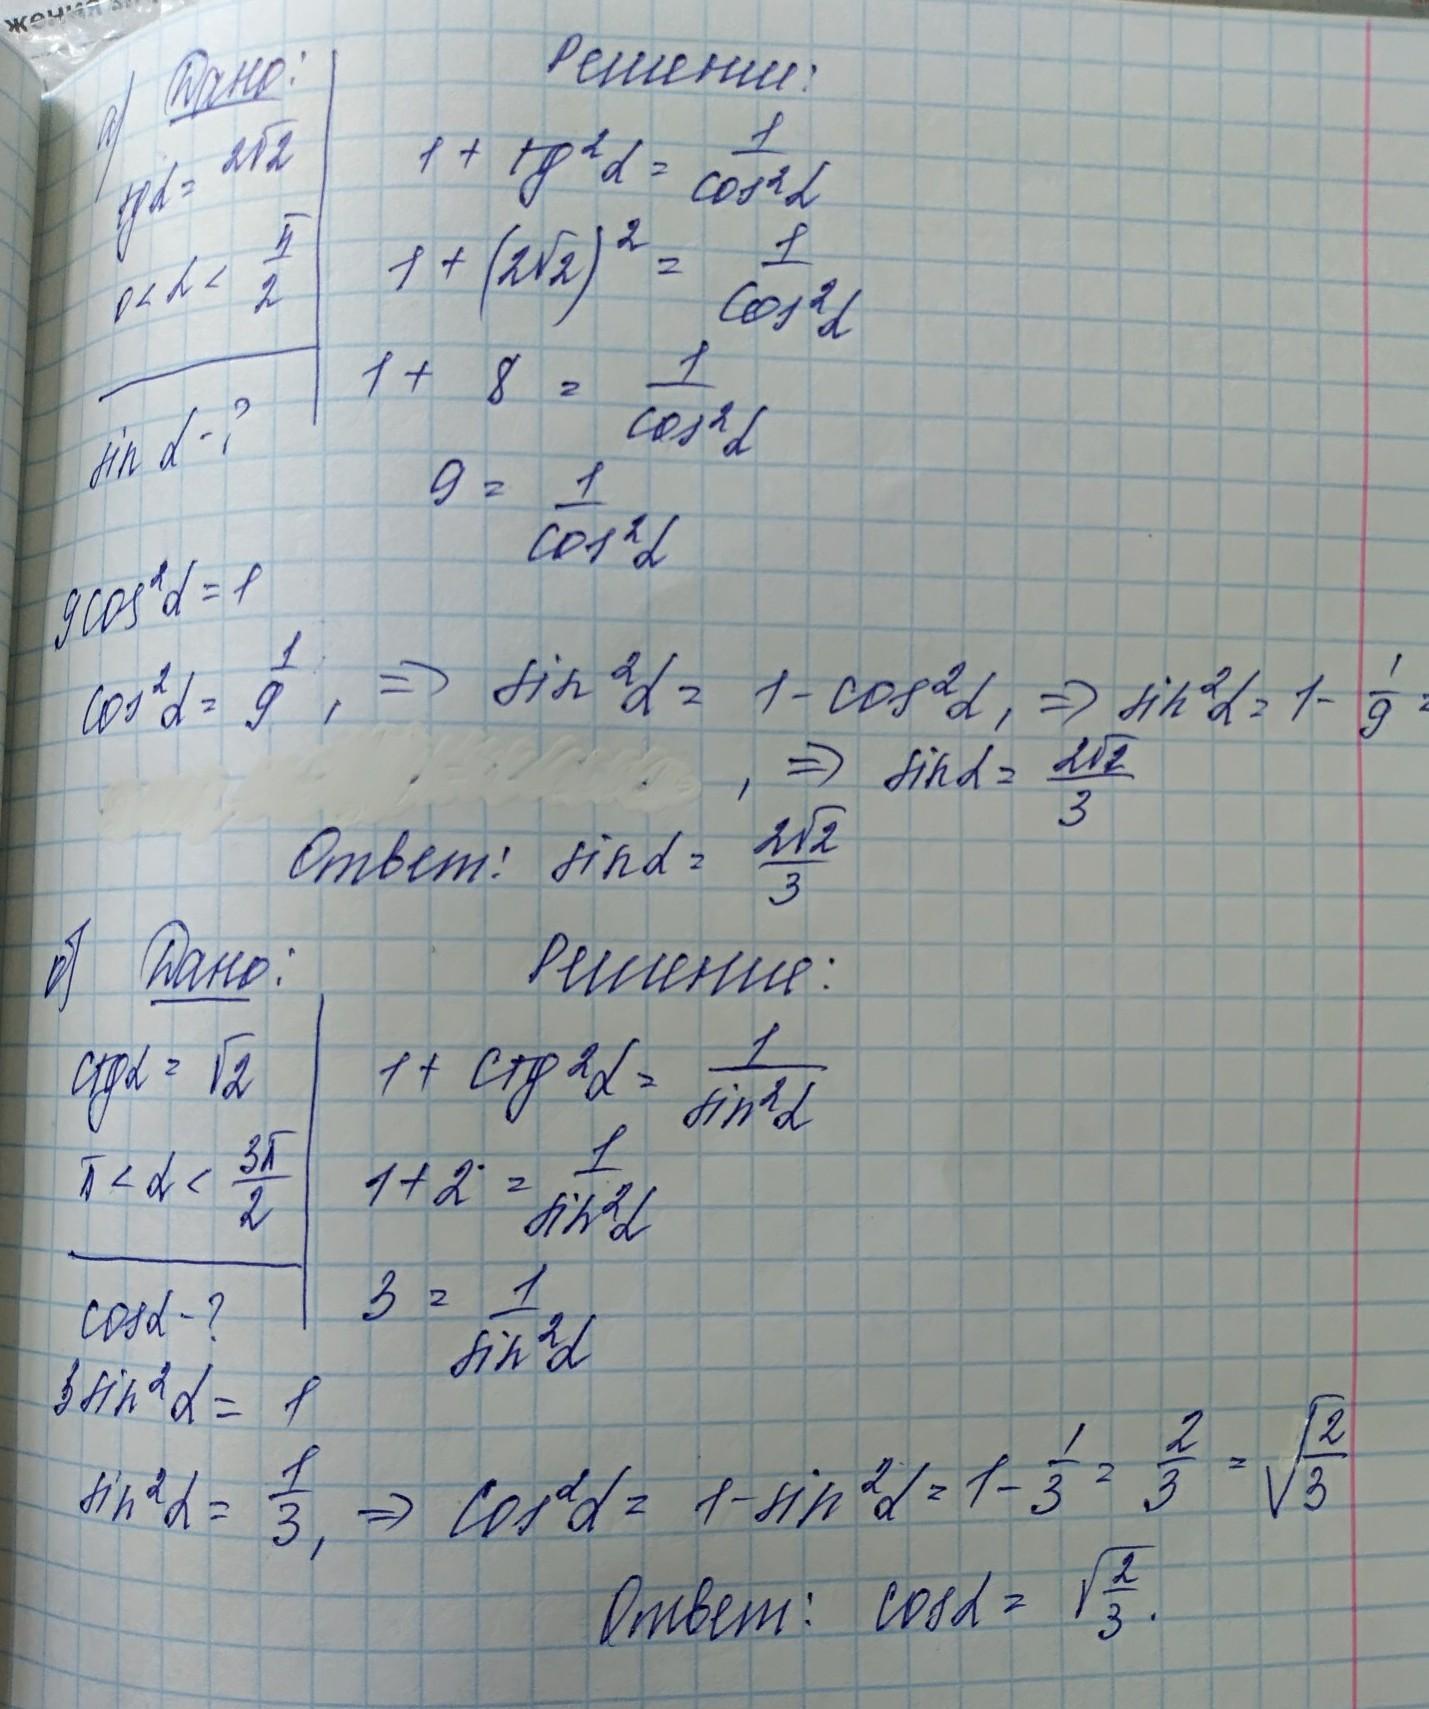 жения
а) Дано:
tgα = 2√2
0 < α < π/2
sin α - ?
Решение:
1 + tg²α = 1/cos²α
1 + (2√2)² = 1/cos²α
1 + 8 = 1/cos²α
9 = 1/cos²α
9cos²α = 1
cos²α = 1/9, => sin²α = 1 - cos²α, => sin²α = 1 - 1/9 =
, => sinα = 2√2/3
Ответ: sinα = 2√2/3
б) Дано:
ctgα = √2
π < α < 3π/2
cosα - ?
Решение:
1 + ctg²α = 1/sin²α
1 + 2 = 1/sin²α
3 = 1/sin²α
3sin²α = 1
sin²α = 1/3, => cos²α = 1 - sin²α = 1 - 1/3 = 2/3 = √2/3
Ответ: cosα = √2/3.